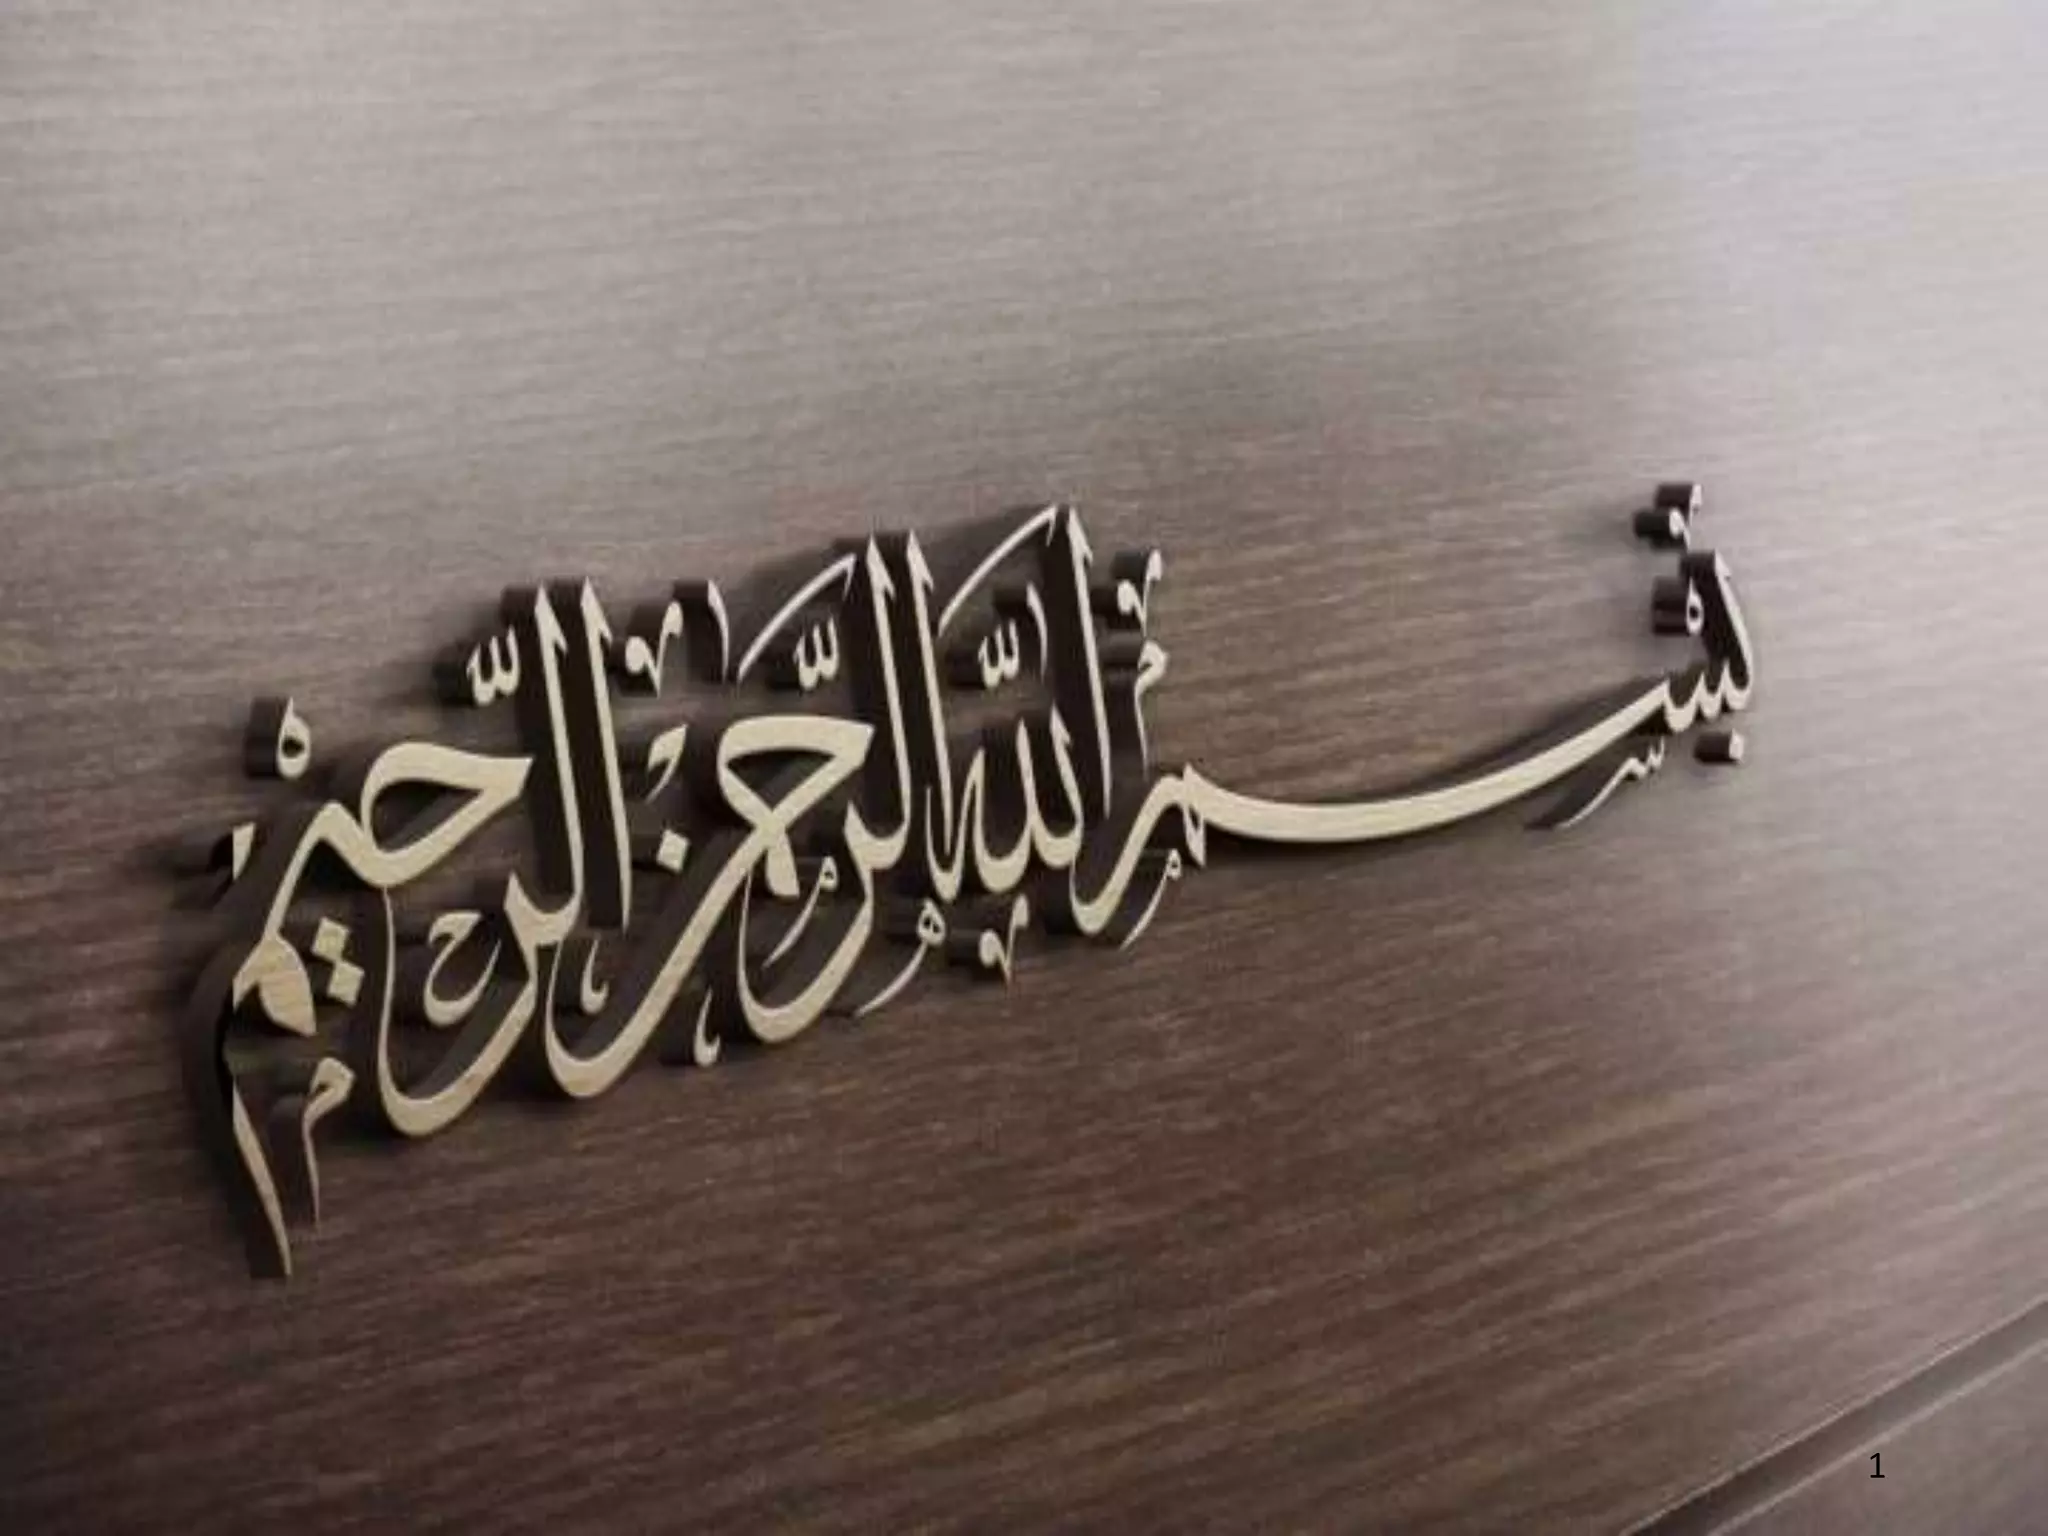 بِسْمِ اللّٰهِ الرَّحْمٰنِ الرَّحِيْمِ
1